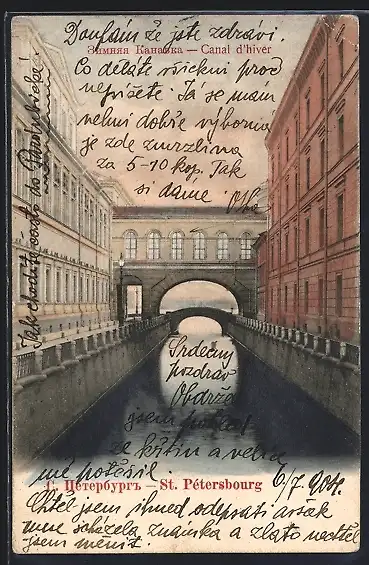 Doufám že jste zdrávi.
Зимняя Канавка — Canal d'hiver
Co děláte všickni proč
nepíšete. Já se mám
velmi dobře výborná
je zde zmrzlina
za 5-10 kop. Tak
si dáme.
Jak chodíte často do
Srdečný
pozdrav
Obdržel
jsem pohled
ze křtin a velice
mě potěšil.
С. Петербургъ — St. Pétersbourg
6/7 904.
Chtěl jsem ihned odepsati avšak
mne scházela známka a zlato nechtěl
jsem měnit.